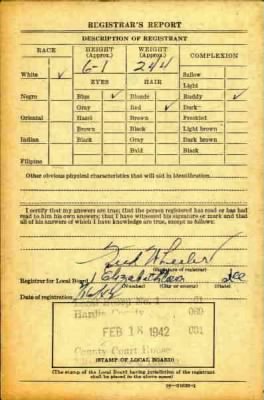 REGISTRAR'S REPORT
DESCRIPTION OF REGISTRANT
RACE HEIGHT (Approx.) WEIGHT (Approx.) COMPLEXION
6-1 244
White ✓ EYES HAIR Sallow
Light
Negro Blue ✓ Blonde Ruddy ✓
Gray Red ✓ Dark
Oriental Hazel Brown Freckled
Brown Black Light brown
Indian Black Gray Dark brown
Bald Black
Filipino
Other obvious physical characteristics that will aid in identification
I certify that my answers are true; that the person registered has read or has had
read to him his own answers; that I have witnessed his signature or mark and that
all of his answers of which I have knowledge are true, except as follows:
Fred Wheeler
(Signature of registrar)
Registrar for Local Board 1 Elizabethtown Ill
(Number) (City or county) (State)
Date of registration
Hardin County 069
FEB 16 1942 001
County Court House
(STAMP OF LOCAL BOARD)
(The stamp of the Local Board having jurisdiction of the registrant
shall be placed in the above space)